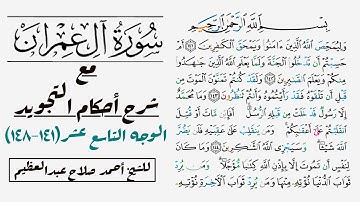 بِسْمِ اللَّهِ الرَّحْمَٰنِ الرَّحِيمِ
سُورَةُ آلِ عِمْرَان
مع
شرح أحكام التجويد
الوجه التاسع عشر (١٤١-١٤٨)
للشيخ أحمد صلاح عبدالعظيم
وَلِيُمَحِّصَ اللَّهُ الَّذِينَ ءَامَنُوا وَيَمْحَقَ الْكَٰفِرِينَ ١٤١ أَمْ
حَسِبْتُمْ أَن تَدْخُلُوا الْجَنَّةَ وَلَمَّا يَعْلَمِ اللَّهُ الَّذِينَ جَٰهَدُوا
مِنكُمْ وَيَعْلَمَ الصَّٰبِرِينَ ١٤٢ وَلَقَدْ كُنتُمْ تَمَنَّوْنَ الْمَوْتَ
مِن قَبْلِ أَن تَلْقَوْهُ فَقَدْ رَأَيْتُمُوهُ وَأَنتُمْ تَنظُرُونَ ١٤٣ وَمَا مُحَمَّدٌ
إِلَّا رَسُولٌ قَدْ خَلَتْ مِن قَبْلِهِ الرُّسُلُ أَفَإِيْن مَّاتَ أَوْ قُتِلَ
انقَلَبْتُمْ عَلَىٰ أَعْقَٰبِكُمْ وَمَن يَنقَلِبْ عَلَىٰ عَقِبَيْهِ فَلَن يَضُرَّ
اللَّهَ شَيْئًا وَسَيَجْزِي اللَّهُ الشَّٰكِرِينَ ١٤٤ وَمَا كَانَ
لِنَفْسٍ أَن تَمُوتَ إِلَّا بِإِذْنِ اللَّهِ كِتَٰبًا مُّؤَجَّلًا وَمَن يُرِدْ
ثَوَابَ الدُّنْيَا نُؤْتِهِ مِنْهَا وَمَن يُرِدْ ثَوَابَ الْءَاخِرَةِ نُؤْتِهِ